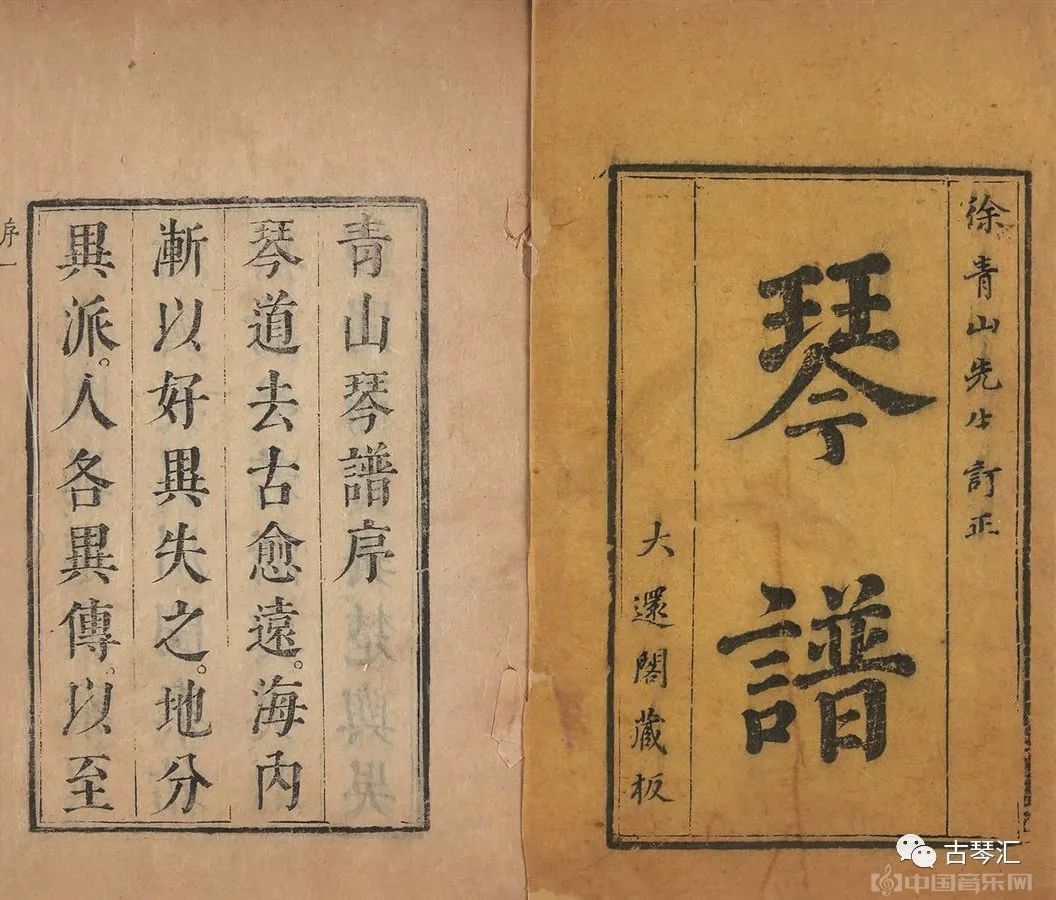 徐青山先生訂正
琴譜
大還閣藏板
青山琴譜序
琴道去古愈遠。海內
漸以好異失之。地分
異派。人各異傳。以至
序一
古琴汇
中国音乐网